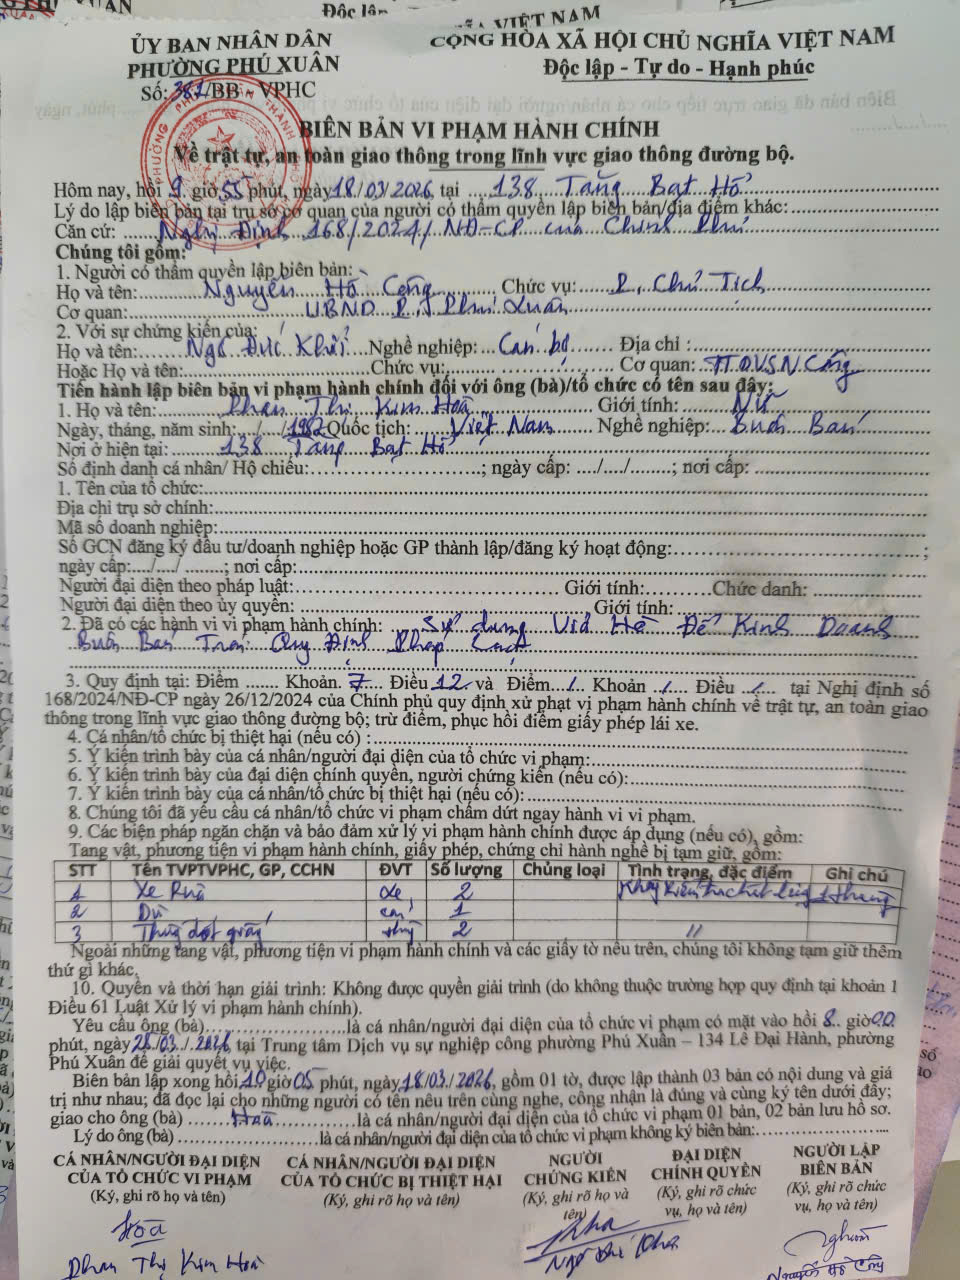 Độc lập
ỦY BAN NHÂN DÂN
PHƯỜNG PHÚ XUÂN
Số: 381/BB - VPHC
CỘNG HÒA XÃ HỘI CHỦ NGHĨA VIỆT NAM
Độc lập - Tự do - Hạnh phúc
BIÊN BẢN VI PHẠM HÀNH CHÍNH
Về trật tự, an toàn giao thông trong lĩnh vực giao thông đường bộ.
Hôm nay, hồi 9. giờ 55 phút, ngày 18/03/2026, tại 138 Tăng Bạt Hổ
Lý do lập biên bản tại trụ sở cơ quan của người có thẩm quyền lập biên bản/địa điểm khác:
Căn cứ: Nghị Định 168/2024/NĐ-CP của Chính Phủ
Chúng tôi gồm:
1. Người có thẩm quyền lập biên bản:
Họ và tên: Nguyễn Hồ Công Chức vụ: P. Chủ Tịch
Cơ quan: UBND P. Phú Xuân
2. Với sự chứng kiến của:
Họ và tên: Ngô Đức Khải Nghề nghiệp: Cán bộ Địa chỉ :
Hoặc Họ và tên: Chức vụ: Cơ quan: TTDVSN Công
Tiến hành lập biên bản vi phạm hành chính đối với ông (bà)/tổ chức có tên sau đây:
1. Họ và tên: Phan Thị Kim Hoà Giới tính: Nữ
Ngày, tháng, năm sinh: / /1982 Quốc tịch: Việt Nam Nghề nghiệp: Buôn Bán
Nơi ở hiện tại: 138 Tăng Bạt Hổ
Số định danh cá nhân/ Hộ chiếu: ; ngày cấp: / / ; nơi cấp:
1. Tên của tổ chức:
Địa chỉ trụ sở chính:
Mã số doanh nghiệp:
Số GCN đăng ký đầu tư/doanh nghiệp hoặc GP thành lập/đăng ký hoạt động: ;
ngày cấp: / / ; nơi cấp:
Người đại diện theo pháp luật: Giới tính: Chức danh:
Người đại diện theo ủy quyền: Giới tính:
2. Đã có các hành vi vi phạm hành chính: Sử dụng Vỉa Hè Để Kinh Doanh
Buôn Bán Trái Quy Định Pháp Luật
3. Quy định tại: Điểm Khoản 7 Điều 12 và Điểm / Khoản / Điều / tại Nghị định số
168/2024/NĐ-CP ngày 26/12/2024 của Chính phủ quy định xử phạt vi phạm hành chính về trật tự, an toàn giao
thông trong lĩnh vực giao thông đường bộ; trừ điểm, phục hồi điểm giấy phép lái xe.
4. Cá nhân/tổ chức bị thiệt hại (nếu có) :
5. Ý kiến trình bày của cá nhân/người đại diện của tổ chức vi phạm:
6. Ý kiến trình bày của đại diện chính quyền, người chứng kiến (nếu có):
7. Ý kiến trình bày của cá nhân/tổ chức bị thiệt hại (nếu có):
8. Chúng tôi đã yêu cầu cá nhân/tổ chức vi phạm chấm dứt ngay hành vi vi phạm.
9. Các biện pháp ngăn chặn và bảo đảm xử lý vi phạm hành chính được áp dụng (nếu có), gồm:
Tang vật, phương tiện vi phạm hành chính, giấy phép, chứng chỉ hành nghề bị tạm giữ, gồm:
STT Tên TVPTVPHC, GP, CCHN ĐVT Số lượng Chủng loại Tình trạng, đặc điểm Ghi chú
1 Xe Rùa xe 2
2 Dù cái 1
3 Thùng đựng 2 "
Ngoài những tang vật, phương tiện vi phạm hành chính và các giấy tờ nêu trên, chúng tôi không tạm giữ thêm
thứ gì khác.
10. Quyền và thời hạn giải trình: Không được quyền giải trình (do không thuộc trường hợp quy định tại khoản 1
Điều 61 Luật Xử lý vi phạm hành chính).
Yêu cầu ông (bà) là cá nhân/người đại diện của tổ chức vi phạm có mặt vào hồi 8 giờ 00
phút, ngày 28/03/2026, tại Trung tâm Dịch vụ sự nghiệp công phường Phú Xuân – 134 Lê Đại Hành, phường
Phú Xuân để giải quyết vụ việc.
Biên bản lập xong hồi 10 giờ 05 phút, ngày 18/03/2026, gồm 01 tờ, được lập thành 03 bản có nội dung và giá
trị như nhau; đã đọc lại cho những người có tên nêu trên cùng nghe, công nhận là đúng và cùng ký tên dưới đây;
giao cho ông (bà) Hoà là cá nhân/người đại diện của tổ chức vi phạm 01 bản, 02 bản lưu hồ sơ.
Lý do ông (bà) là cá nhân/người đại diện của tổ chức vi phạm không ký biên bản:
CÁ NHÂN/NGƯỜI ĐẠI DIỆN
CỦA TỔ CHỨC VI PHẠM
(Ký, ghi rõ họ và tên)
CÁ NHÂN/NGƯỜI ĐẠI DIỆN
CỦA TỔ CHỨC BỊ THIỆT HẠI
(Ký, ghi rõ họ và tên)
NGƯỜI
CHỨNG KIẾN
(Ký, ghi rõ họ và
tên)
ĐẠI DIỆN
CHÍNH QUYỀN
(Ký, ghi rõ chức
vụ, họ và tên)
NGƯỜI LẬP
BIÊN BẢN
(Ký, ghi rõ chức
vụ, họ và tên)
Hoà
Phan Thị Kim Hoà
Ngô Đức Khải
Nguyễn Hồ Công